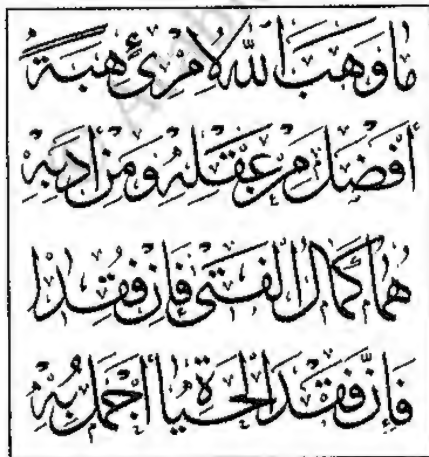 ما وَهَبَ اللّٰهُ لِامْرِئٍ هِبَةً
أَفْضَلَ مِنْ عَقْلِهِ وَمِنْ أَدَبِهِ
هُمَا كَمَالُ الْفَتَى فَإِنْ فُقِدَا
فَإِنَّ فَقْدَ الْحَيَاةِ أَجْمَلُ بِهِ